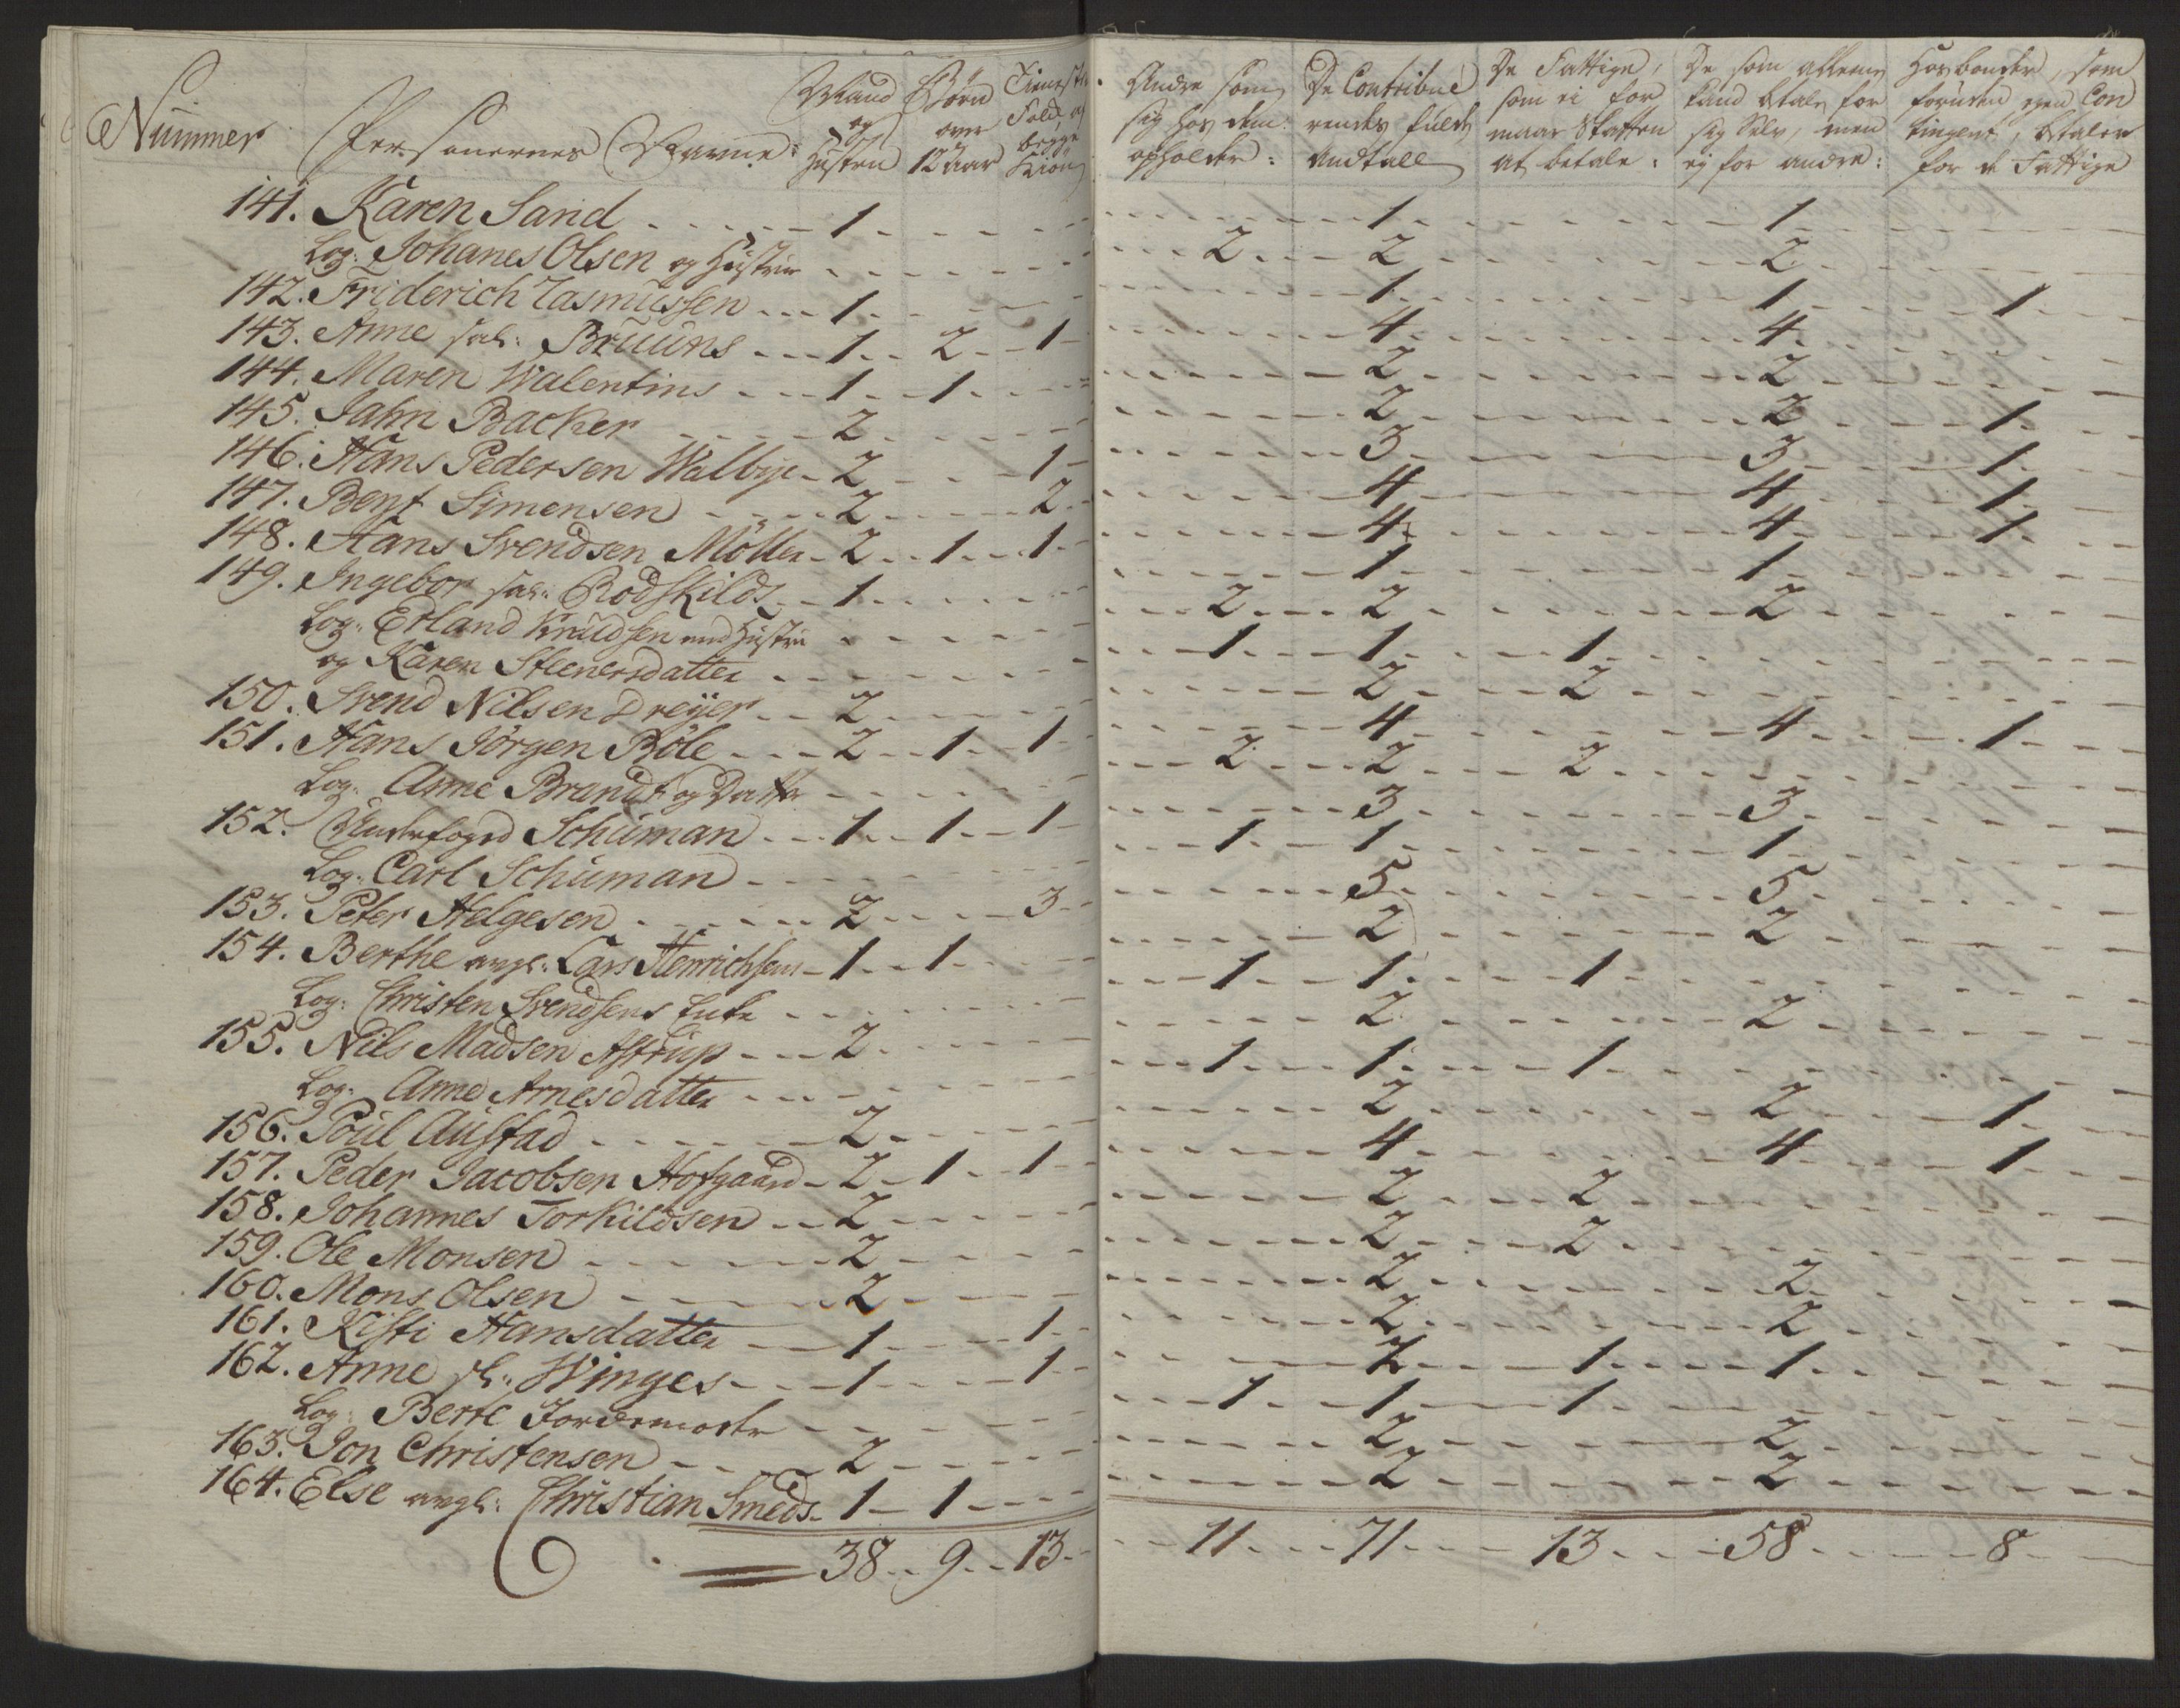 Nummer Personernes Navne: Mand og Hustru Börn over 12 aar Tieneste Folk, af begge Kiön Andre som sig hos dem opholder: De Contribuerendes fulde Andtall De Fattige, som ei formaar Skatten at betale: De som alleene kand betale for sig Selv, men ej for andre: Hosbonder, som foruden egen Contingent, betaler for de Fattige
141. Karen Sand 1 1 1
Log: Johanes Olsen og Hustrue 2 2 2
142. Friderich Rasmussen 1 1 1 1
143. Anne sal: Bruuns 1 2 1 4 4
144. Maren Walentins 1 1 2 2
145. Jahn Backer 2 2 2 1
146. Hans Pedersen Walbye 2 1 3 3 1
147. Bent Simensen 2 2 4 4 1
148. Hans Svendsen Möller 2 1 1 4 4 1
149. Ingebor sal: Rodskilds 1 1 1
Log: Erland Knudsen med Hustru 2 2 2
og Karen Steenersdatter 1 1 1
150. Svend Nilsen Dreyer 2 2 2
151. Hans Jörgen Böle 2 1 1 4 4 1
Log: Anne Brandt og Datter 2 2 2
152. Underfoged Schuman 1 1 1 3 3
Log: Carl Schuman 1 1 1
153. Peter Helgesen 2 3 5 5
154. Berthe angl: Lars Henrichsens 1 1 2 2
Log: Christen Svendsens Enke 1 1 1
155. Nils Madsen Astrup 2 2 2
Log: Anne Arnesdatter 1 1 1
156. Poul Austad 2 2 2 1
157. Peder Jacobsen Hofgaard 2 1 1 4 4 1
158. Johannes Torkildsen 2 2 2
159. Ole Monsen 2 2 2
160. Mons Olsen 2 2 2
161. Kisti Hansdatter 1 1 2 2
162. Anne sl: Winges 1 1 2 1 1
Log: Berte Jordemoder 1 1 1
163. Jon Christensen 2 2 2
164. Else angl: Christian Smeds 1 1 2 2
38 9 13 11 71 13 58 8